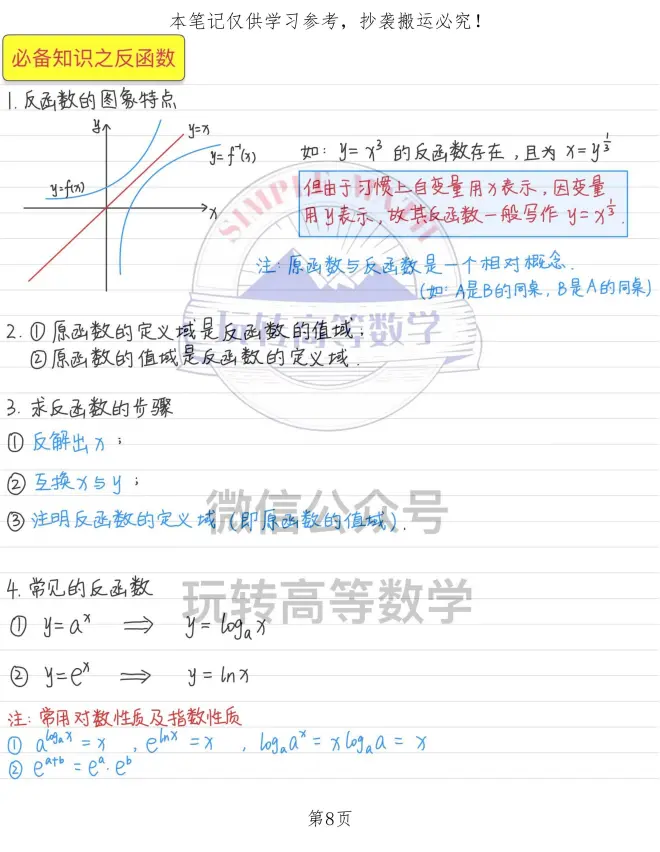 本笔记仅供学习参考，抄袭搬运必究！
必备知识之反函数
1. 反函数的图象特点
y
y=x
y=f⁻¹(x)
y=f(x)
x
如：y=x³ 的反函数存在，且为 x=y^{1/3}
但由于习惯上自变量用x表示，因变量
用y表示，故其反函数一般写作 y=x^{1/3}.
注：原函数与反函数是一个相对概念.
(如：A是B的同桌，B是A的同桌)
SIMPLE MATH
玩转高等数学
2. ①原函数的定义域是反函数的值域；
②原函数的值域是反函数的定义域.
3. 求反函数的步骤
① 反解出x；
② 互换x与y；
③ 注明反函数的定义域(即原函数的值域).
微信公众号
玩转高等数学
4. 常见的反函数
① y=aˣ ⟹ y=logₐx
② y=eˣ ⟹ y=lnx
注：常用对数性质及指数性质
① a^{logₐx}=x ，e^{lnx}=x ，logₐaˣ=xlogₐa=x
② e^{a+b}=e^a·e^b
第8页